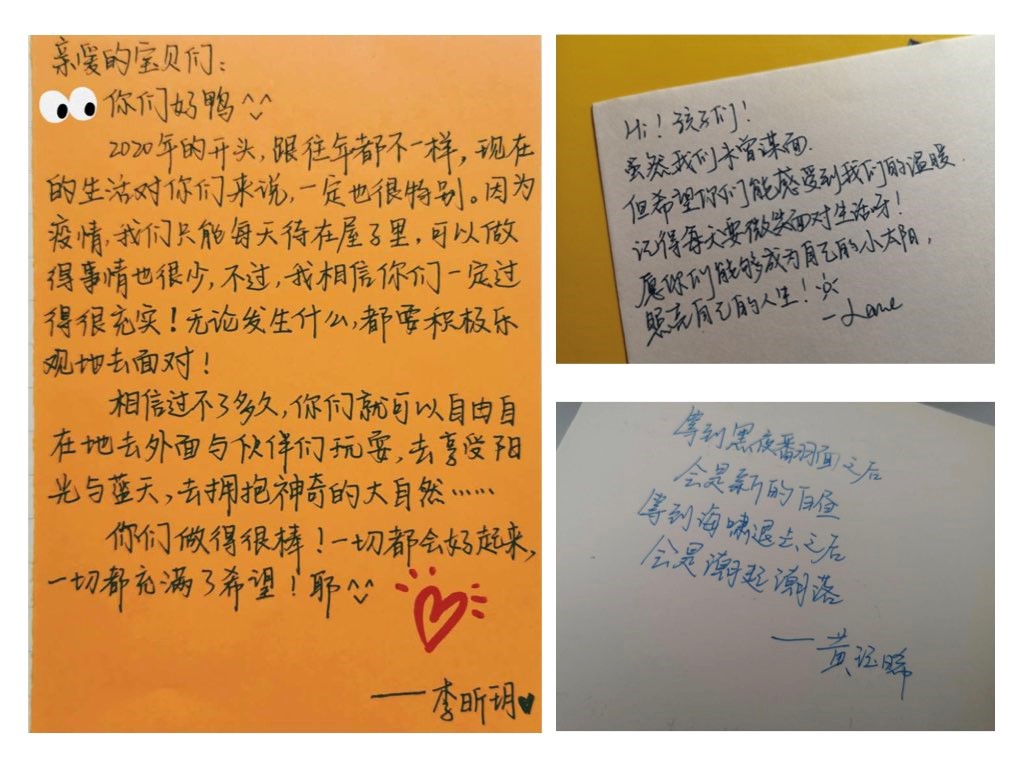 亲爱的宝贝们：
你们好鸭^^
2020年的开头，跟往年都不一样，现在
的生活对你们来说，一定也很特别。因为
疫情，我们只能每天待在屋子里，可以做
得事情也很少，不过，我相信你们一定过
得很充实！无论发生什么，都要积极乐
观地去面对！
相信过不了多久，你们就可以自由自
在地去外面与伙伴们玩耍，去享受阳
光与蓝天，去拥抱神奇的大自然……
你们做得很棒！一切都会好起来，
一切都充满了希望！耶^^
——李昕玥
Hi！孩子们！
虽然我们未曾谋面
但希望你们能感受到我们的温暖.
记得每天要微笑面对生活呀！
愿你们能够成为自己的小太阳，
照亮自己的人生！
等到黑夜翻面之后
会是新的白昼
等到海啸退去之后
会是潮起潮落
——黄